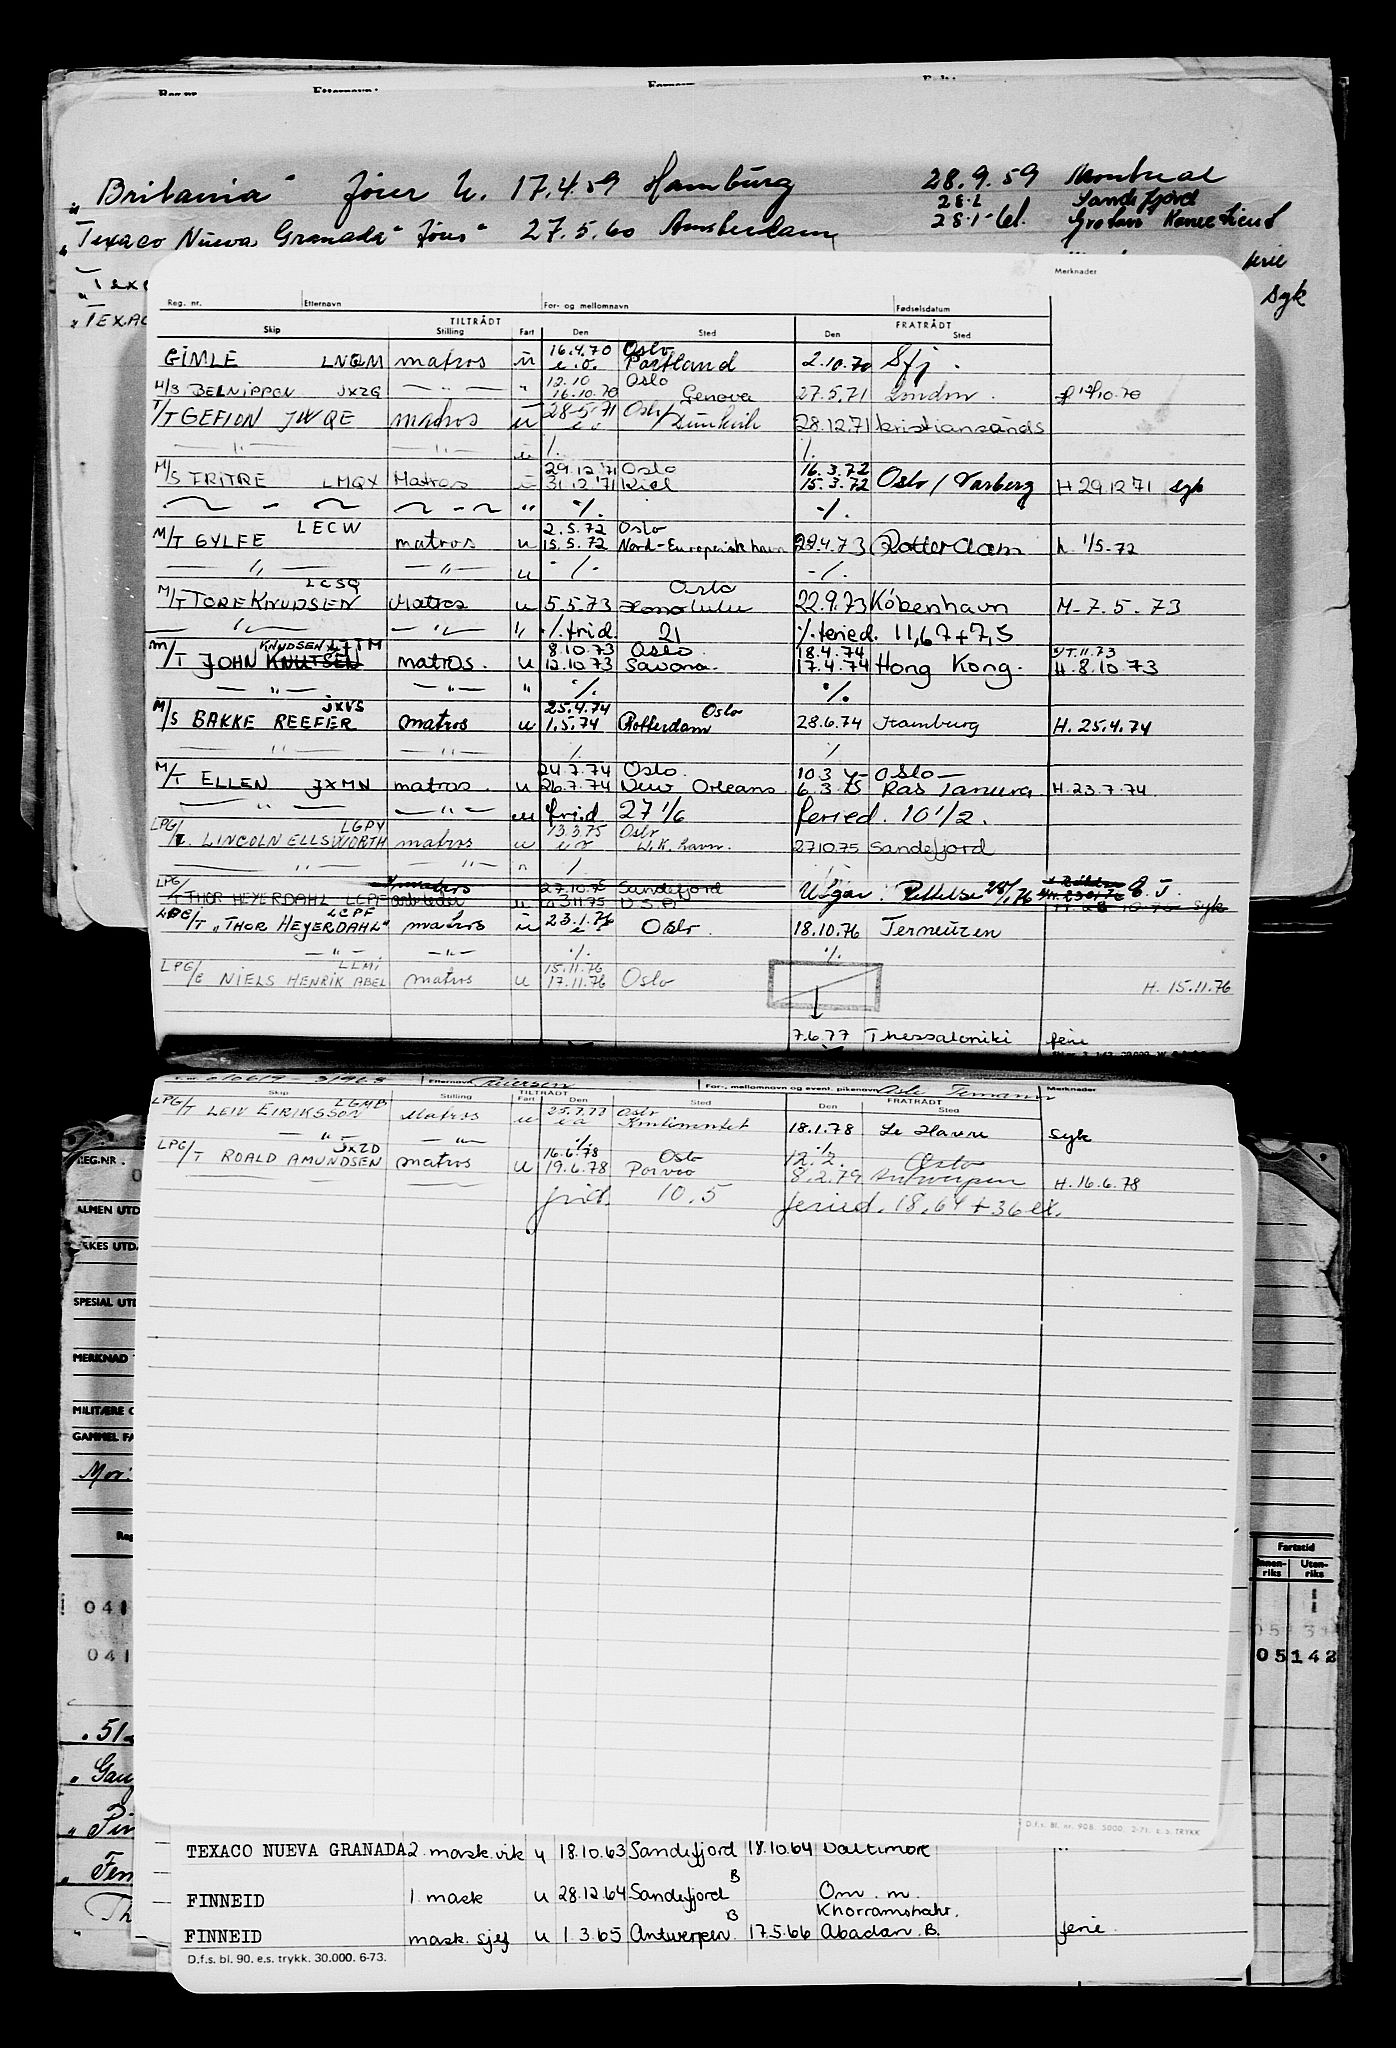 "Britania" fører U. 17.4.59 Hamburg 28.9.59
28.2 Sandefjord
"Texaco Nueva Granada" 27.5.60 Amsterdam 28.1-61.
ferie
Syk
Merknader
Reg. nr. Etternavn For- og mellomnavn Fødselsdatum
TILTRÅDT FRATRÅDT
Skip Stilling Fart Den Sted Den Sted
16.4.70 Oslo
GIMLE LNQM matros u e.o. Portland 2.10.70 Sfj.
12.10 Oslo
M/S BELNIPPON JXZG — " — " 16.10.70 Genova 27.5.71 London.
T/T GEFION JWQE matros u 28.5.71 Oslo / Dunkirk 28.12.71 Kristiansands
— " — — " — u %. %.
29.12.71 Oslo 16.3.72
M/S TRITRE LMQX Matros u 31.12.71 Kiel 15.3.72 Oslo / Varberg H 29.12 71 syk
" %. %.
LECW 2.5.72 Oslo
M/T GYLFE matros u 15.5.72 Nord-Europeisk havn 22.4.73 Rotterdam 1/5.72
— " — — " — u %. %.
LCSQ Oslo
M/T TORE KNUDSEN Matros u 5.5.73 Honolulu 22.9.73 København M-7.5.73
— " — — " — " %. frid. 21 %. feried. 11,67+7,5
KNUDSEN LJTM 8.10.73 Oslo. 18.4.74
M/T JOHN KNUTSEN matros. u 12.10.73 Savona. 17.4.74 Hong Kong. H.8.10.73
— " — — " — " %. %.
JXVS 25.4.74 Oslo
M/S BAKKE REEFER matros u 1.5.74 Rotterdam 28.6.74 Hamburg H. 25.4.74
— " — — " — %. %
24.7.74 Oslo. 10.3 Oslo—
M/T ELLEN JXMN matros. u 26.7.74 New Orleans. 6.3.75 Ras Tanura H.23.7.74
— " — — " — u frid 27 1/6 feried. 10 1/2.
LPG/ LGPV 13.3.75 Oslo
T. LINCOLN ELLSWORTH matros u e.o W.K. havn. 27.10.75 Sandefjord
— " — — " — " %
LPG/ matros 27.10.75 Sandefjord Utgår. Rettelse 28/1.76
T THOR HEYERDAHL LCPF USA Syk
LPG/T "THOR HEYERDAHL" LCPF matros u 23.1.76 Oslo. 18.10.76 Terneuzen
— " — — " — %. %.
LLMI 15.11.76
LPG/T NIELS HENRIK ABEL matros u 17.11.76 Oslo H. 15.11.76
7.6.77 Thessaloniki ferie
Etternavn Petersen For-, mellomnavn og event. pikenavn Merknader
Skip Stilling TILTRÅDT Den Sted Den FRATRÅDT Sted
LPG/T LEIV EIRIKSSON LGMB Matros u Oslo Kontinentet 18.1.78 Le Havre syk
— " — — " — %. %.
JXZD 16.6.78 Oslo 12.2. Oslo
LPG/T ROALD AMUNDSEN matros u 19.6.78 Porvoo 8.2.79 Antwerpen H.16.6.78
frid. 10.5 feried. 18,64 + 36 ex.
REG.NR.
ALMEN UTD
SPESIAL UTD
MERKNAD
MILITÆRE
GAMMEL
Mor:
Reg
Fartstid
Innen-riks Uten-riks
041
041 05142
51
D.f.s. Bl. nr. 90B. 5000. 2-71. e.s. TRYKK
TEXACO NUEVA GRANADA 2. mask.vik u 18.10.63 Sandefjord 18.10.64 Baltimore "
FINNEID 1 mask u 28.12.64 Sandefjord B Om. m. Khorramshahr.
FINNEID mask. sjef u 1.3.65 Antwerpen. B 17.5.66 Abadan B. ferie.
D.f.s. bl. 90. e.s. trykk. 30.000. 6-73.